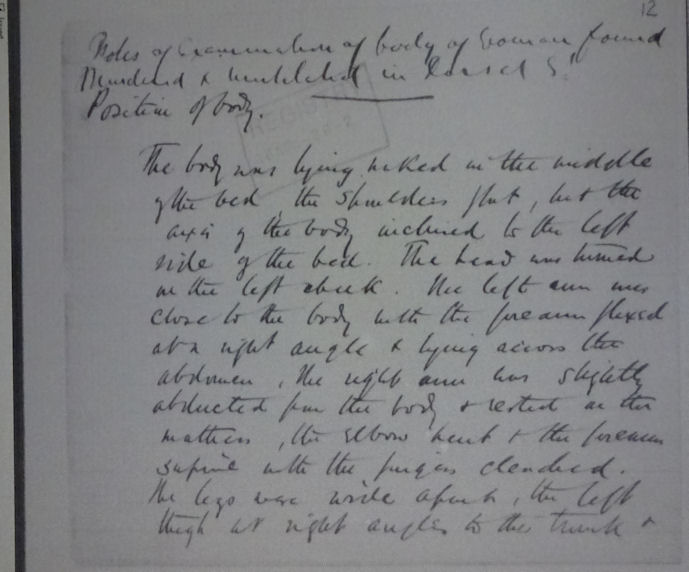 12
Notes of Examination of body of Woman found
Murdered & mutilated in Dorset St
Position of body.
REGISTRY
The body was lying naked in the middle
of the bed, the shoulders flat, but the
axis of the body inclined to the left
side of the bed. The head was turned
on the left cheek. The left arm was
close to the body with the forearm flexed
at a right angle & lying across the
abdomen, the right arm was slightly
abducted from the body & rested on the
mattress, the elbow bent & the forearm
supine with the fingers clenched.
The legs were wide apart, the left
thigh at right angles to the trunk &